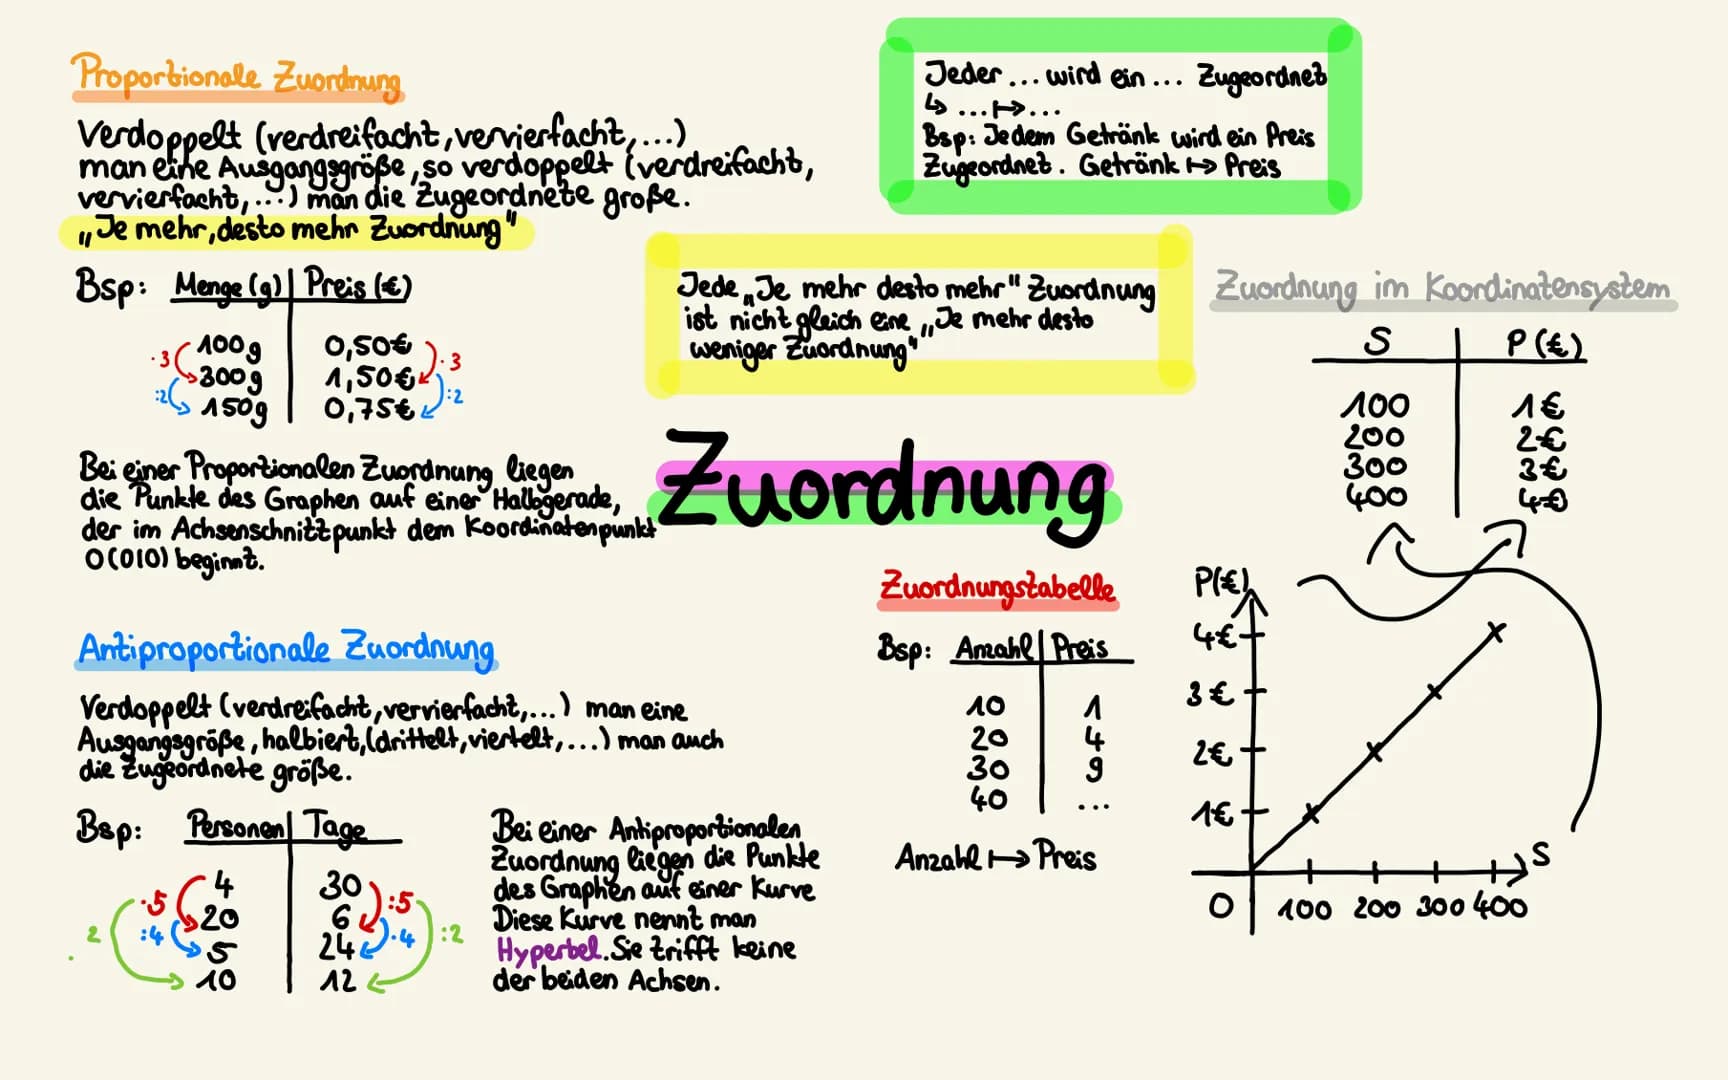 Proportionale Zuordnung
Verdoppelt (verdreifacht, vervierfacht, ...)
man eine Ausgangsgröße, so verdoppelt (verdreifacht,
vervierfacht, ...) man die Zugeordnete große.
„Je mehr, desto mehr Zuordnung"
Bsp: Menge (g) | Preis (€)
·3 100g 0,50€ ·3
300g 1,50€
:2 150g 0,75€ :2
Bei einer Proportionalen Zuordnung liegen
die Punkte des Graphen auf einer Halbgerade,
der im Achsenschnittpunkt dem Koordinatenpunkt
O(010) beginnt.
Antiproportionale Zuordnung
Verdoppelt (verdreifacht, vervierfacht, ...) man eine
Ausgangsgröße, halbiert, (drittelt, viertelt, ...) man auch
die Zugeordnete größe.
Bsp: Personen | Tage
·5 4 30 :5
20 6
2 :4 5 24 ·4 :2
. 10 12
Bei einer Antiproportionalen
Zuordnung liegen die Punkte
des Graphen auf einer Kurve
Diese Kurve nennt man
Hyperbel. Sie trifft keine
der beiden Achsen.
Jeder ... wird ein ... Zugeordnet
↳ ... ↦ ...
Bsp: Jedem Getränk wird ein Preis
Zugeordnet. Getränk ↦ Preis
Jede „Je mehr desto mehr" Zuordnung
ist nicht gleich eine „Je mehr desto
weniger Zuordnung"
Zuordnung
Zuordnungstabelle
Bsp: Anzahl | Preis
10 1
20 4
30 9
40 ...
Anzahl ↦ Preis
Zuordnung im Koordinatensystem
S P (€)
100 1€
200 2€
300 3€
400 4€
P(€)
4€
3€
2€
1€
S
0 100 200 300 400